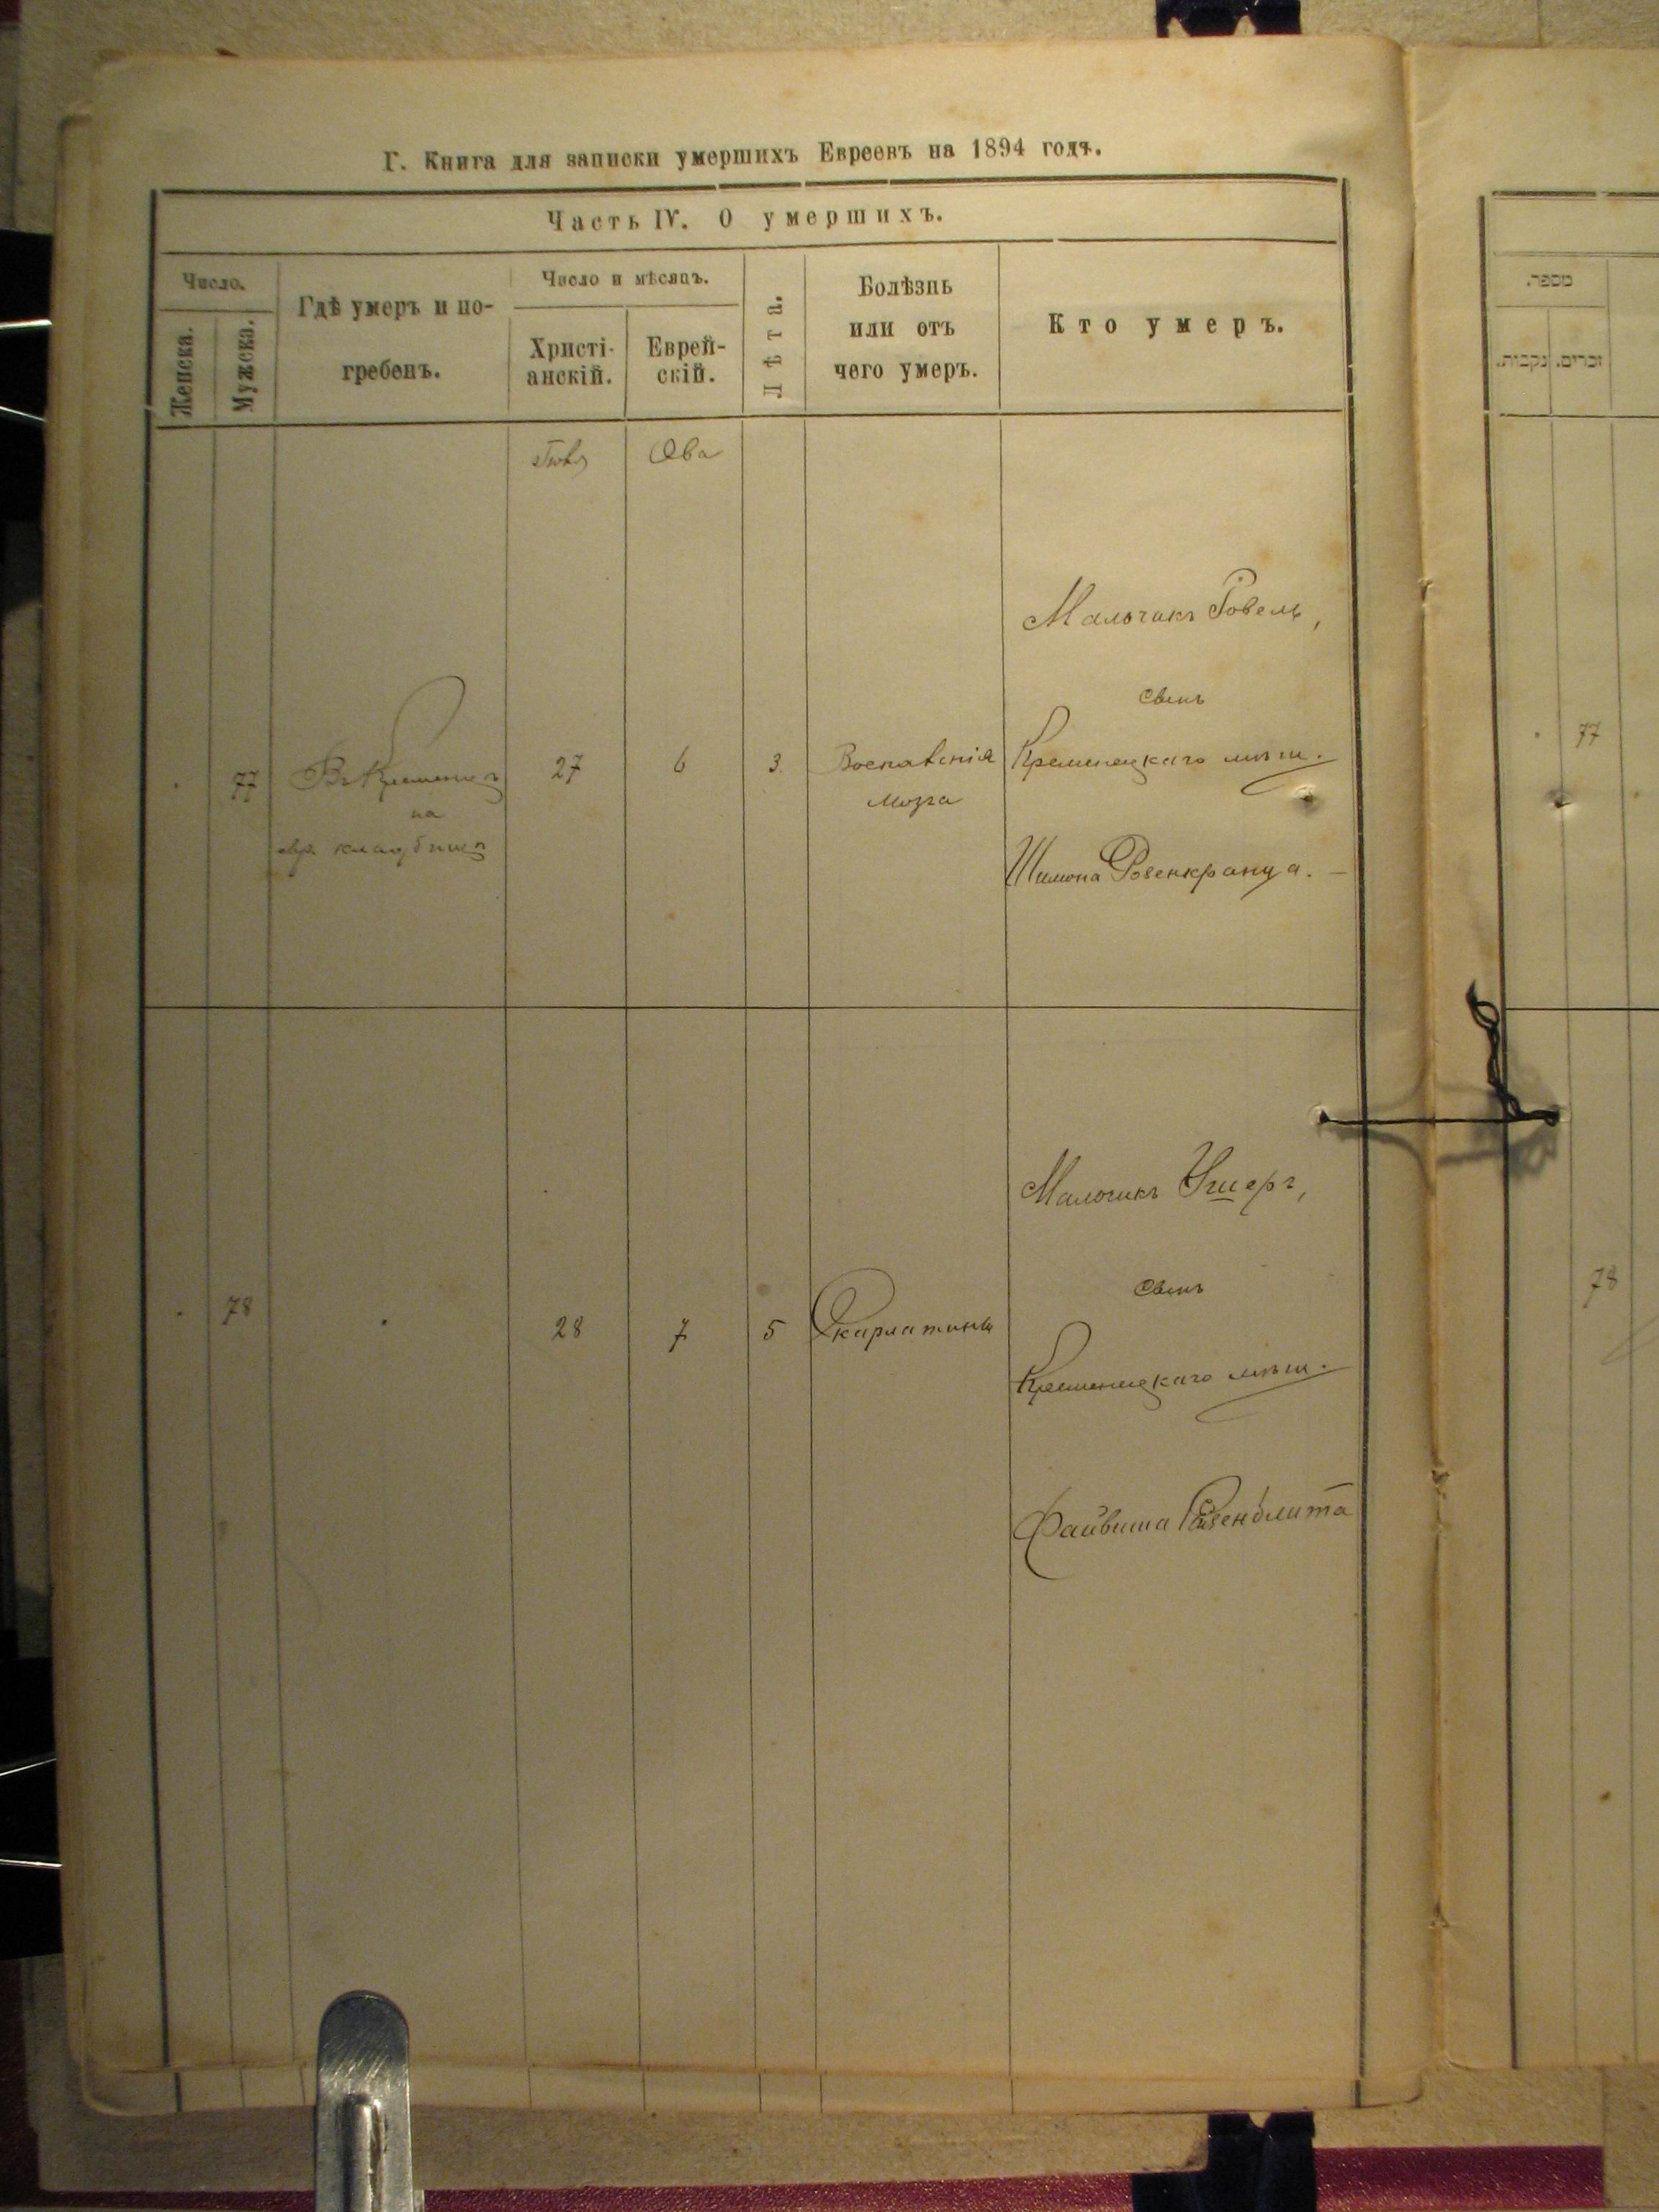 Г. Книга для записки умершихъ Евреевъ на 1894 годъ.
Часть IV. О умершихъ.
Число.
Женска.
Мужска.
Гдѣ умеръ и по-
гребенъ.
Число и мѣсяцъ.
Христі-
анскій.
Еврей-
скій.
Лѣта.
Болѣзнь
или отъ
чего умеръ.
Кто умеръ.
Ава
77
Въ Кременцѣ
на
евр. кладбищѣ
27
6
3
Воспаленія
мозга
Мальчикъ Іовель,
сынъ
Кременецкаго мѣщ.
Шимона Розенкранца. –
78
28
7
5
Скарлатины
Мальчикъ Ушеръ,
сынъ
Кременецкаго мѣщ.
Файвиша Розенблита
מספר.
זכרים.
נקבות.
77
78